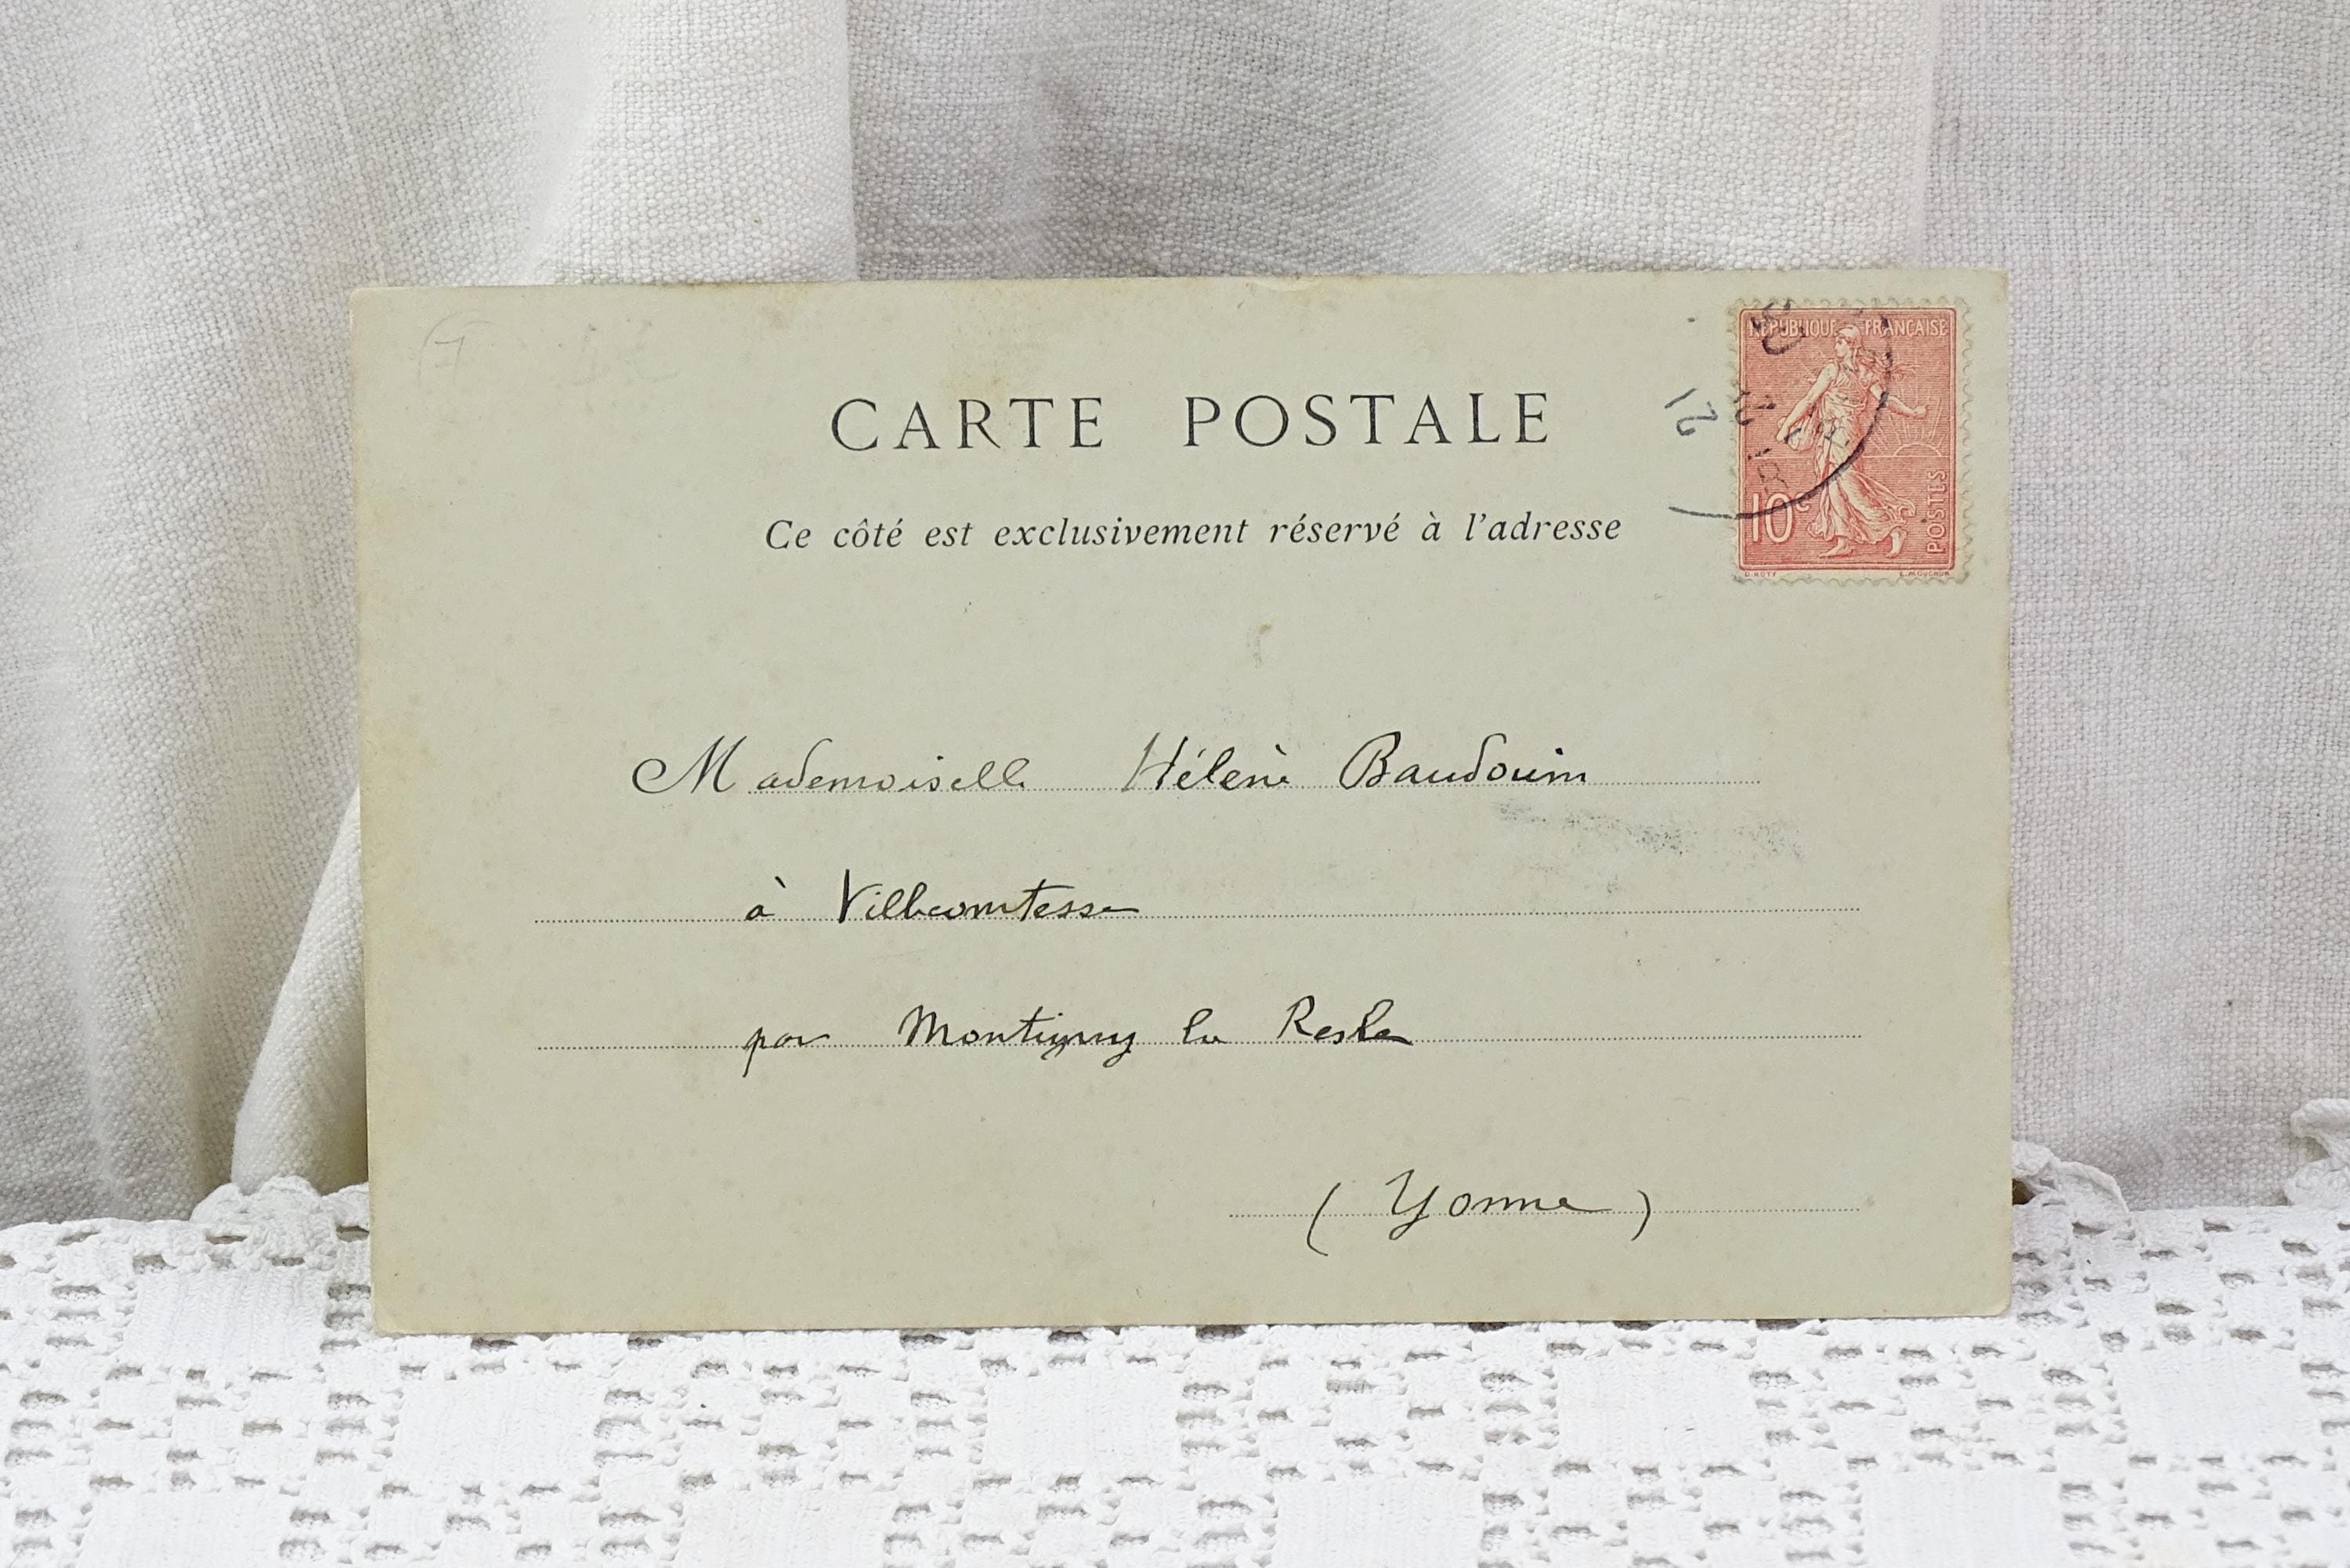 RÉPUBLIQUE FRANÇAISE
CARTE POSTALE
10c
POSTES
O. ROTY
E. MOUCHON
Ce côté est exclusivement réservé à l'adresse
Mademoiselle Hélène Baudouin
à Villecomtesse
par Montigny le Resle
( Yonne )